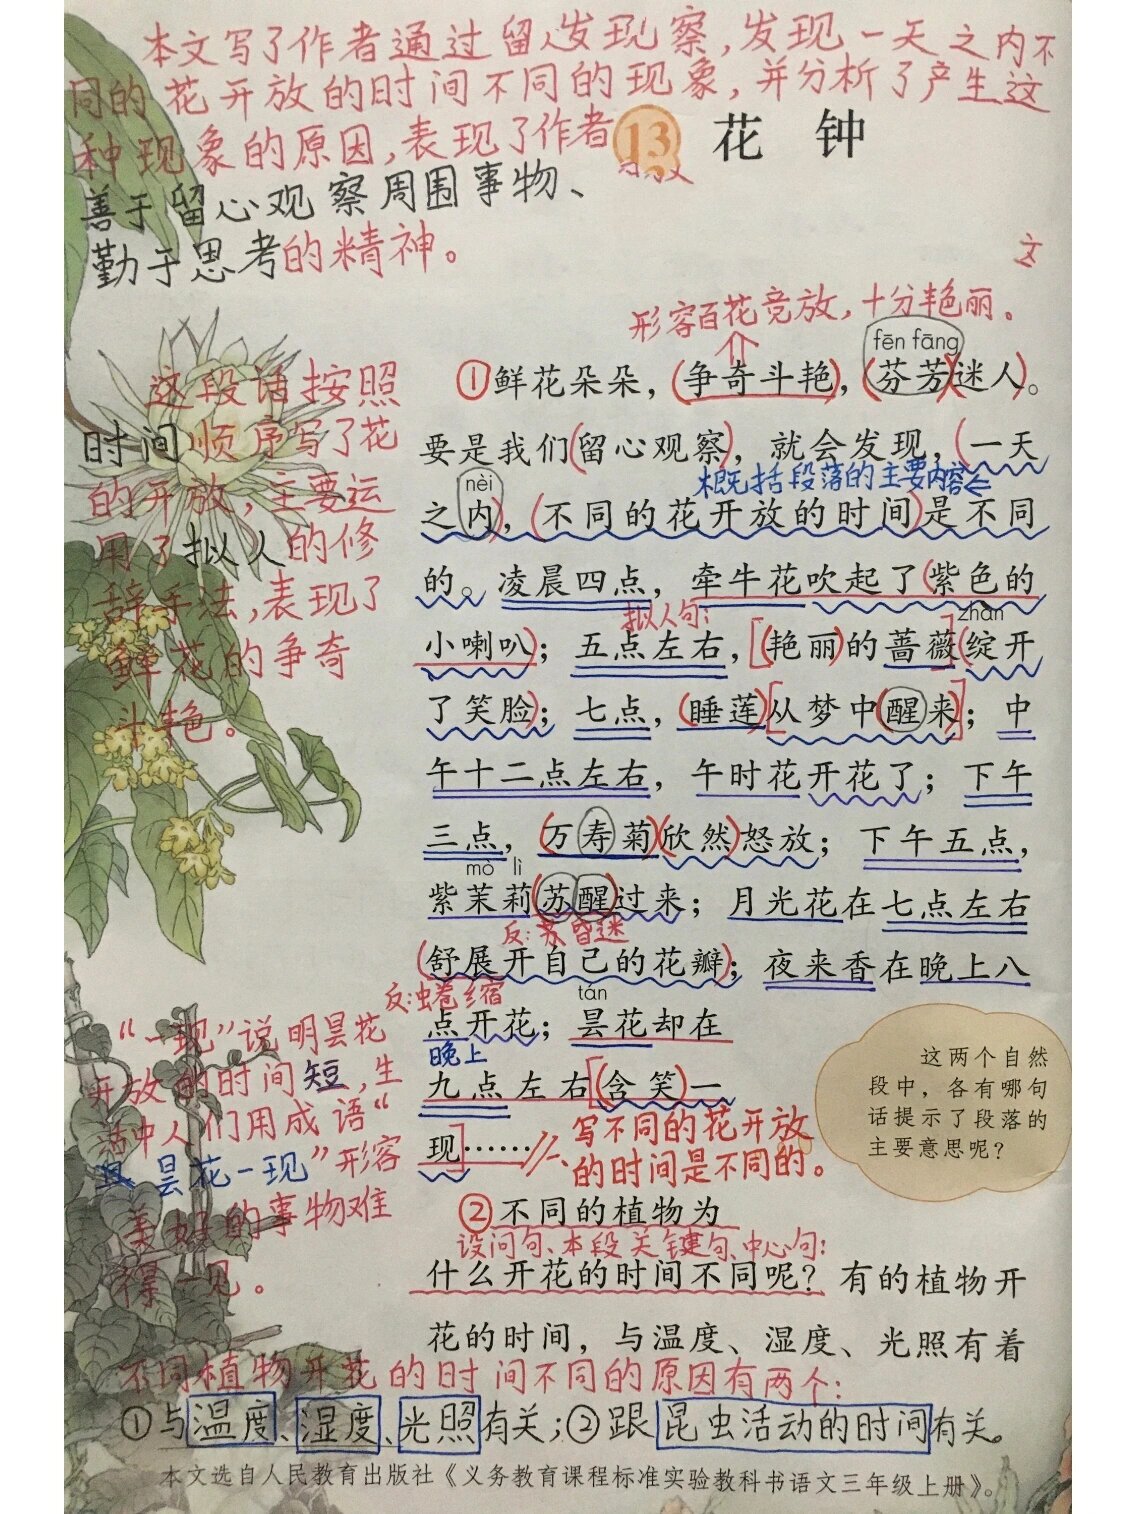 本文写了作者通过留心发现察,发现一天之内不
同的花开放的时间不同的现象,并分析了产生这
种现象的原因,表现了作者
善于留心观察周围事物、
勤于思考的精神。
13 花 钟
文
形容百花竞放,十分艳丽。
fēn fāng
①鲜花朵朵,(争奇斗艳),(芬芳迷人)。
要是我们(留心观察),就会发现,(一天
概括段落的主要内容⇐
nèi
之内),(不同的花开放的时间)是不同
的。凌晨四点,牵牛花吹起了(紫色的
拟人句:
zhàn
小喇叭);五点左右,[(艳丽)的蔷薇(绽开
了笑脸);七点,(睡莲)[从梦中(醒来)];中
午十二点左右,午时花开花了;下午
三点,(万寿菊)(欣然)怒放;下午五点,
mò lì
紫茉莉(苏醒)过来;月光花在七点左右
反:昏迷
(舒展开自己的花瓣);夜来香在晚上八
反:蜷缩
tán
点开花;昙花却在
晚上
九点左右[(含笑)一
现]……//
写不同的花开放
的时间是不同的。
②不同的植物为
设问句、本段关键句、中心句:
什么开花的时间不同呢?有的植物开
花的时间,与温度、湿度、光照有着
这段话按照
时间顺序写了花
的开放,主要运
用了拟人的修
辞手法,表现了
鲜花的争奇
斗艳。
“一现”说明昙花
开放的时间短,生
活中人们用成语“
昙花一现”形容
美好的事物难
得一见。
这两个自然
段中,各有哪句
话提示了段落的
主要意思呢?
不同植物开花的时间不同的原因有两个:
①与温度、湿度、光照有关;②跟昆虫活动的时间有关。
本文选自人民教育出版社《义务教育课程标准实验教科书语文三年级上册》。